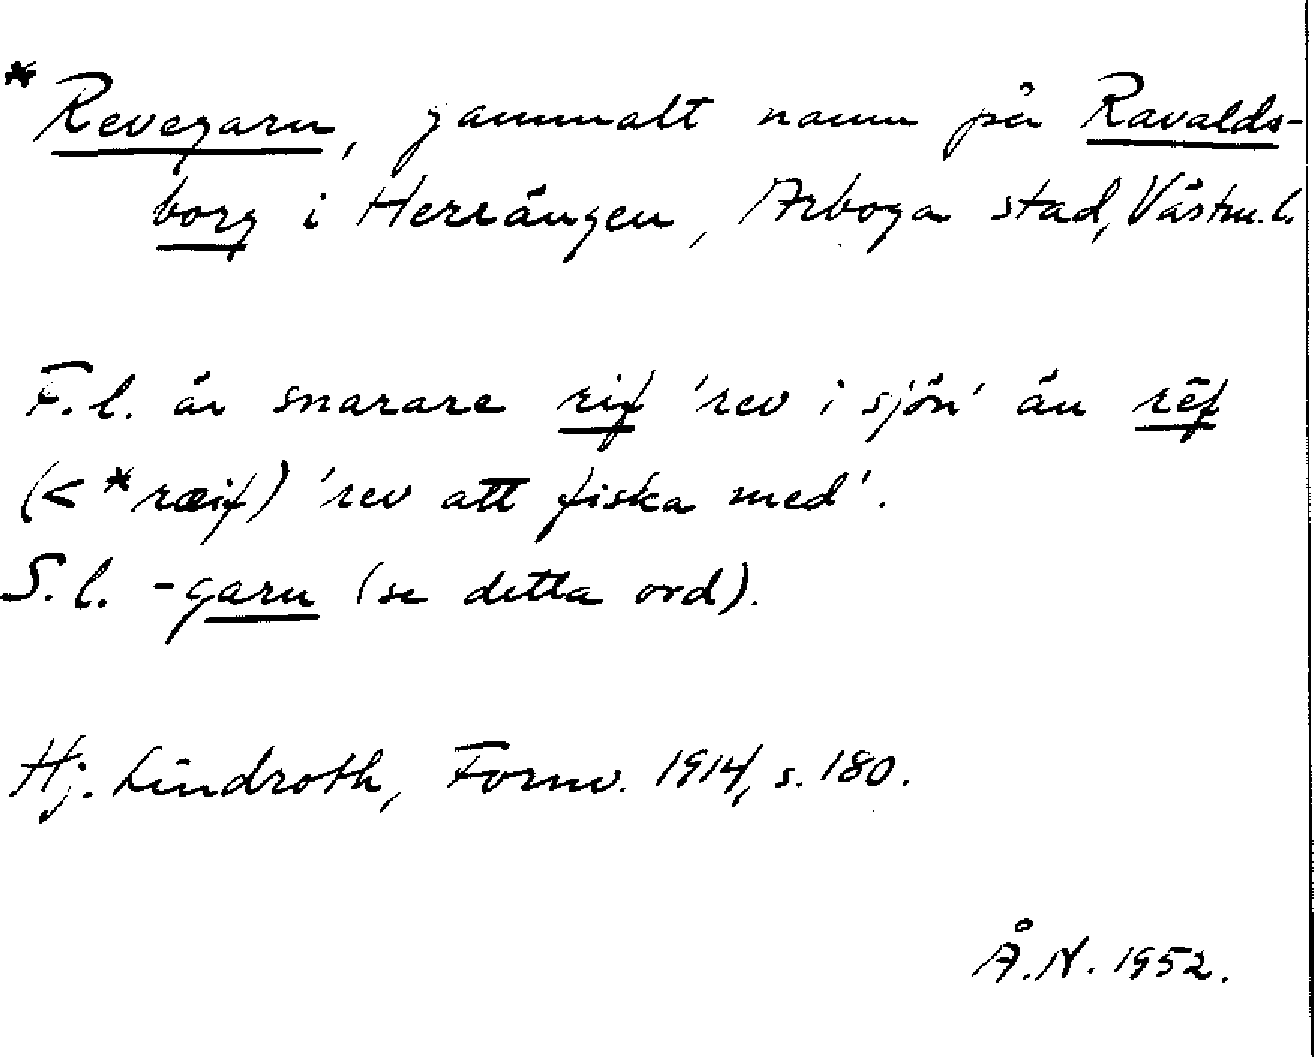 * Revegarn, gammalt namn på Ravalds-
borg i Herrängen, Arboga stad, Västm.l.
F.l. är snarare rif 'rev i sjön' än rēf
(< *ræif) 'rev att fiska med'.
S.l. -garn (se detta ord).
Hj. Lindroth, Fornv. 1914, s. 180.
Å.N. 1952.